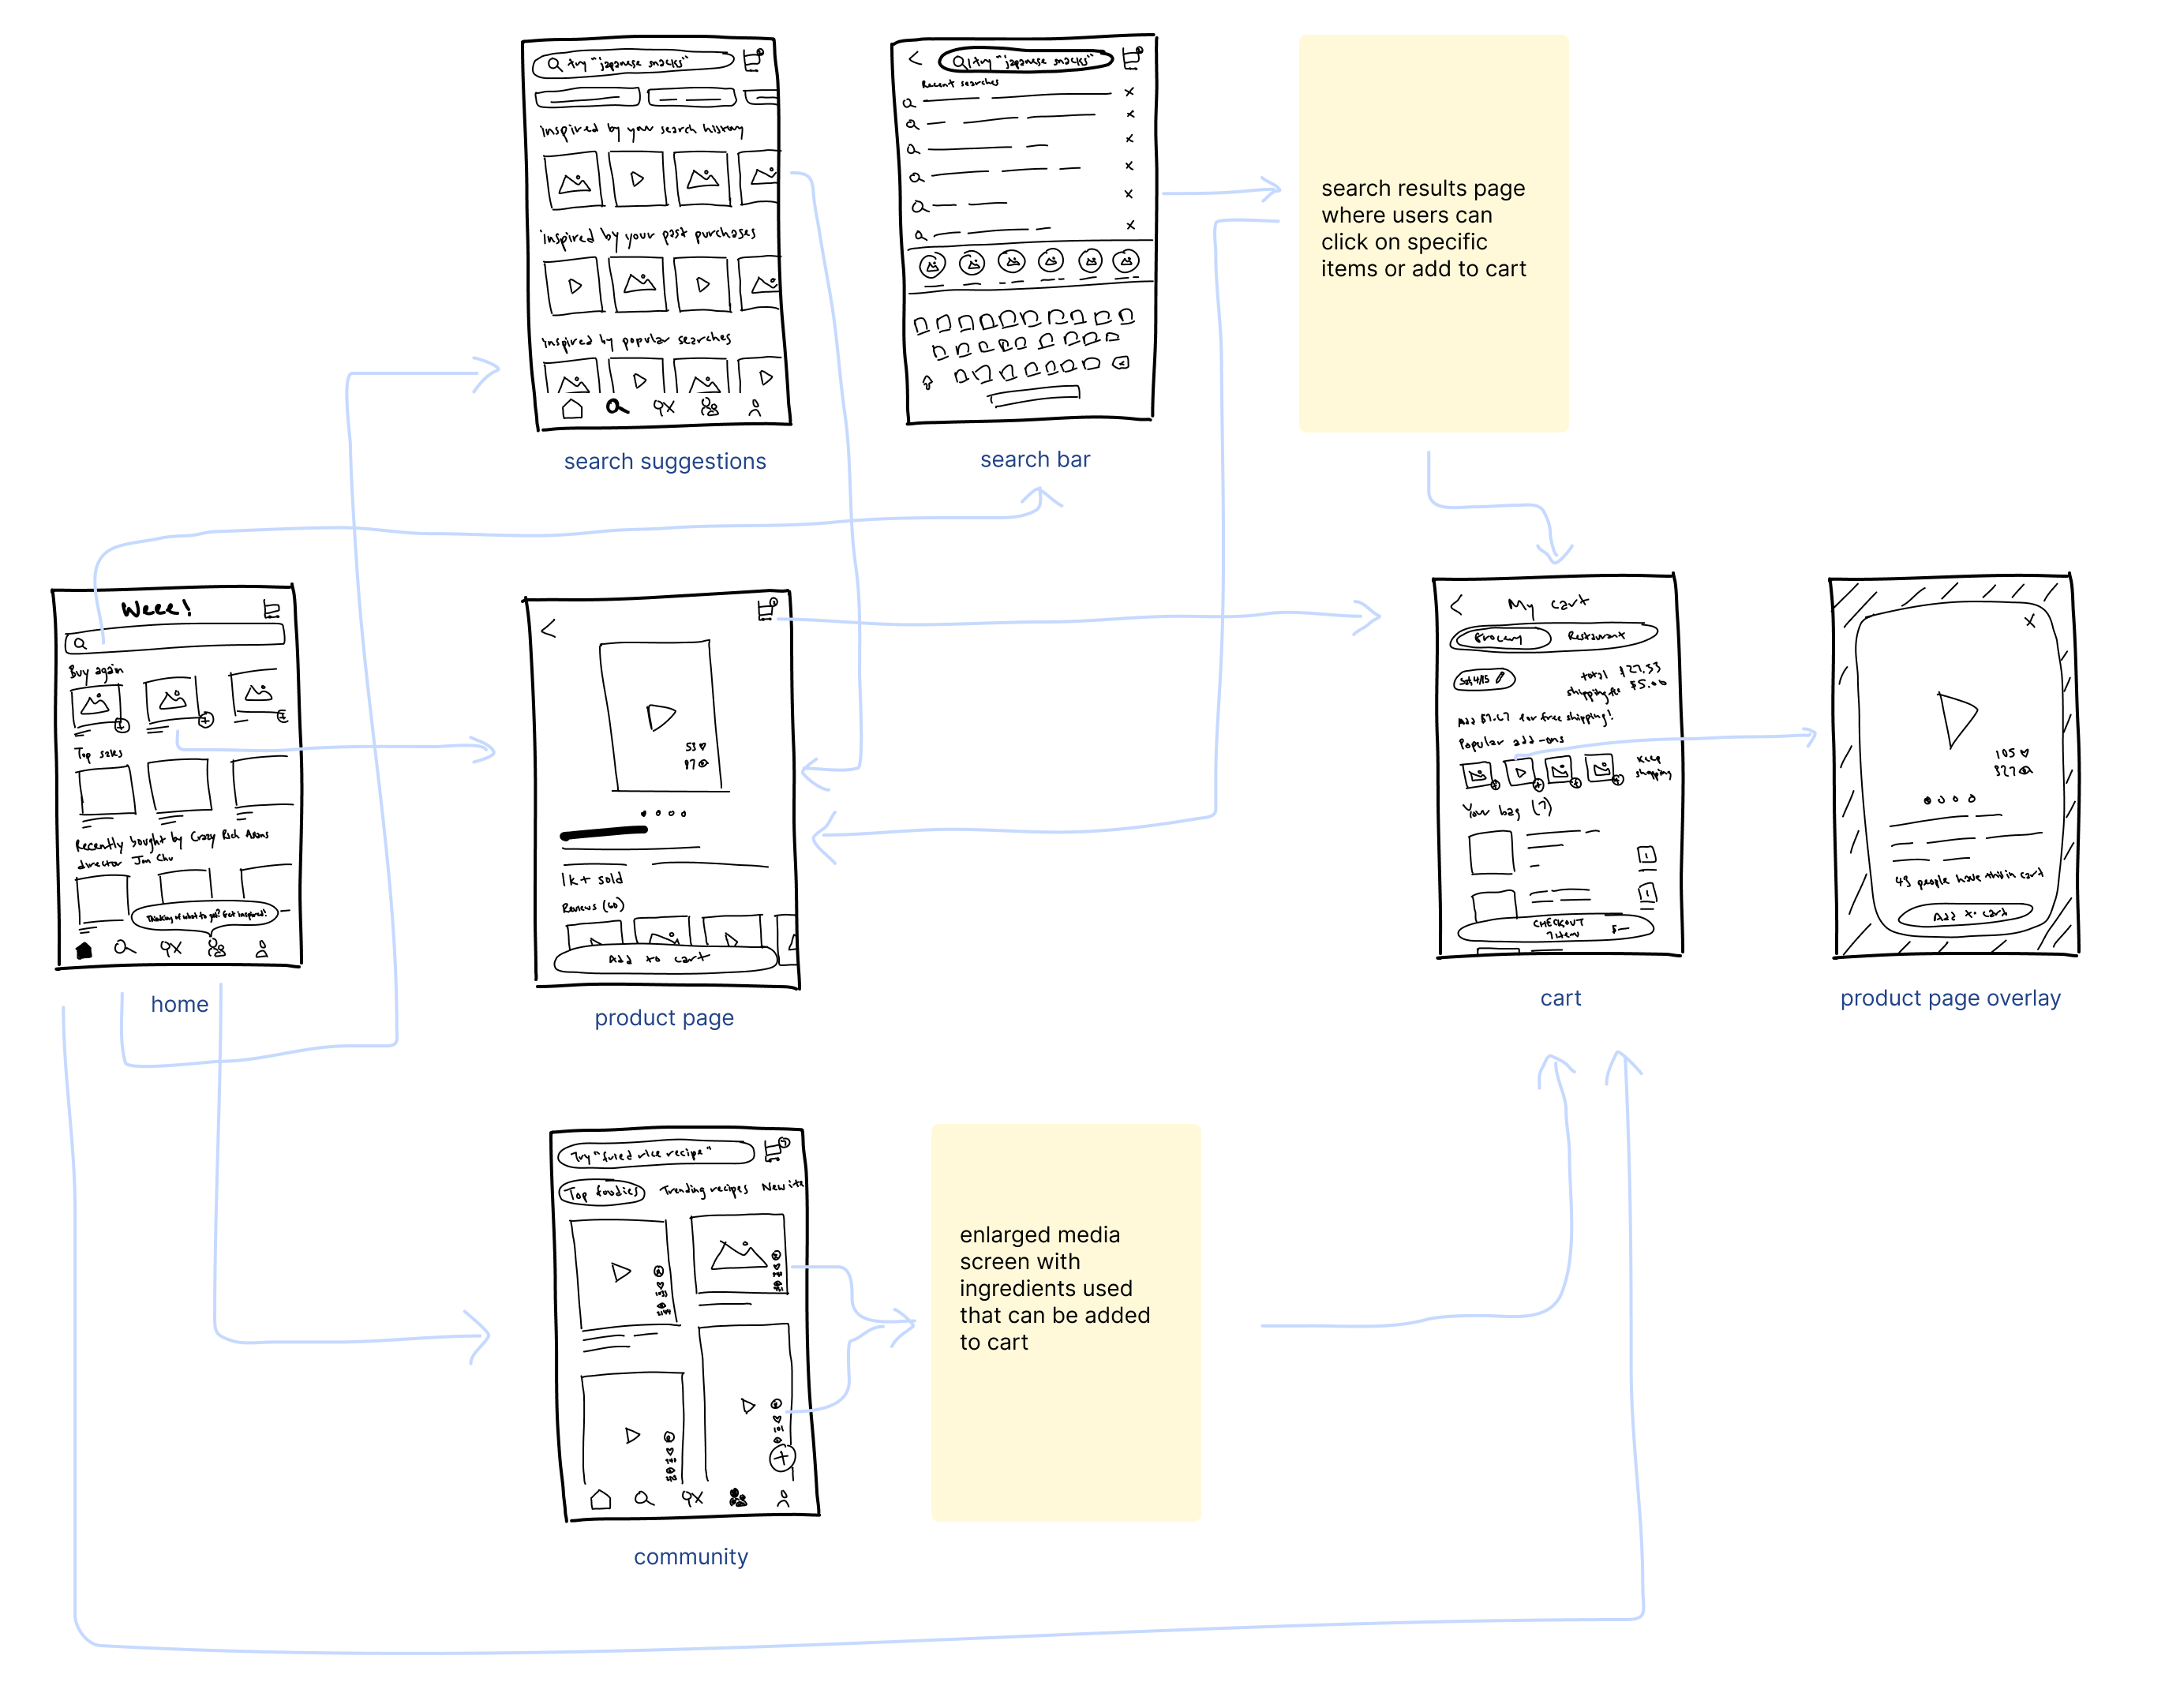 try "japanese snacks"
inspired by your search history
inspired by your past purchases
inspired by popular searches
search suggestions
try "japanese snacks"
Recent searches
search bar
search results page
where users can
click on specific
items or add to cart
Weee!
Buy again
Top sales
Recently bought by Crazy Rich Asians
director Jon Chu
Thinking of what to get? Get inspired!
home
53
97
1k+ sold
Reviews (60)
Add to cart
product page
My cart
Grocery
Restaurant
Sat 4/15
total $27.33
shipping fee $5.00
Add $7.67 for free shipping!
Popular add-ons
Keep
shopping
Your bag (7)
1
1
CHECKOUT
7 item
$
cart
X
105
327
43 people have this in cart
Add to cart
product page overlay
Try "fried rice recipe"
Top foodies
Trending recipes
New ite
community
enlarged media
screen with
ingredients used
that can be added
to cart